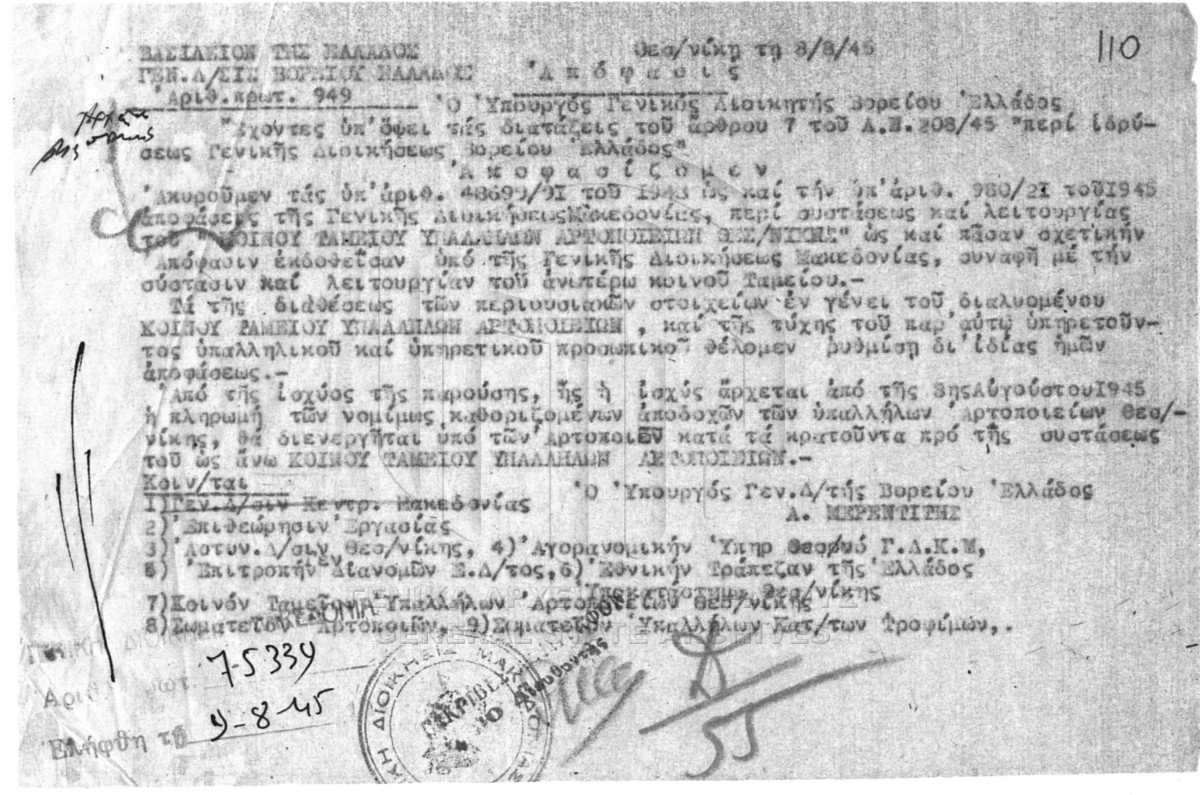 110
ΒΑΣΙΛΕΙΟΝ ΤΗΣ ΕΛΛΑΔΟΣ Θεσ/νίκη τη 8/8/45
ΓΕΝ.Δ/ΣΙΣ ΒΟΡΕΙΟΥ ΕΛΛΑΔΟΣ Ἀ π ό φ α σ ι ς
Ἀριθ.πρωτ. 949 Ὁ Ὑπουργός Γενικός Διοικητής Βορείου Ἑλλάδος
Ἔχοντες ὑπ'ὄψει τάς διατάξεις τοῦ ἄρθρου 7 τοῦ Α.Ν.208/45 "περί ἱδρύ-
σεως Γενικῆς Διοικήσεως Βορείου Ἑλλάδος"
Ἀ π ο φ α σ ί ζ ο μ ε ν
Ἀκυροῦμεν τάς ὑπ'ἀριθ. 48699/91 τοῦ 1943 ὡς καί τήν ὑπ'ἀριθ. 980/21 τοῦ1945
ἀποφάσεις τῆς Γενικῆς ΔιοικήσεωςΜακεδονίας, περί συστάσεως καί λειτουργίας
τοῦ "ΚΟΙΝΟΥ ΤΑΜΕΙΟΥ ΥΠΑΛΛΗΛΩΝ ΑΡΤΟΠΟΙΕΙΩΝ ΘΕΣ/ΝΙΚΗΣ" ὡς καί πᾶσαν σχετικήν
Ἀπόφασιν ἐκδοθεῖσαν ὑπό τῆς Γενικῆς Διοικήσεως Μακεδονίας, συναφῆ μέ τήν
σύστασιν καί λειτουργίαν τοῦ ἀνωτέρω κοινοῦ Ταμείου.-
Τά τῆς διαθέσεως τῶν περιουσιακῶν στοιχείων ἐν γένει τοῦ διαλυομένου
ΚΟΙΝΟΥ ΤΑΜΕΙΟΥ ΥΠΑΛΛΗΛΩΝ ΑΡΤΟΠΟΙΕΙΩΝ , καί τῆς τύχης τοῦ παρ'αὐτῷ ὑπηρετοῦν-
τος ὑπαλληλικοῦ καί ὑπηρετικοῦ προσωπικοῦ θέλομεν ρυθμίση δι'ἰδίας ἡμῶν
ἀποφάσεως.-
Ἀπό τῆς ἰσχύος τῆς παρούσης, ἧς ἡ ἰσχύς ἄρχεται ἀπό τῆς 8ηςΑὐγούστου1945
ἡ πληρωμή τῶν νομίμως καθοριζομένων ἀποδοχῶν τῶν ὑπαλλήλων Ἀρτοποιείων Θεσ/-
νίκης, θά διενεργῆται ὑπό τῶν Ἀρτοποιῶν κατά τά κρατοῦντα πρό τῆς συστάσεως
τοῦ ὡς ἄνω ΚΟΙΝΟΥ ΤΑΜΕΙΟΥ ΥΠΑΛΛΗΛΩΝ ΑΡΤΟΠΟΙΕΙΩΝ.-
Κοιν/ται Ὁ Ὑπουργός Γεν.Δ/τής Βορείου Ἑλλάδος
1)Γεν.Δ/σιν Κεντρ. Μακεδονίας Α. ΜΕΡΕΝΤΙΤΗΣ
2)Ἐπιθεώρησιν Ἐργασίας
3)Ἀστυν.Δ/σιν Θεσ/νίκης, 4)Ἀγορανομικήν Ὑπηρ Γ.Δ.Κ.Μ,
5) Ἐπιτροπήν Διανομῶν Ε.Δ/τος,6)Ἐθνικήν Τράπεζαν τῆς Ἑλλάδος
Ὑποκατάστημα Θεσ/νίκης
7)Κοινόν Ταμεῖον Ὑπαλλήλων Ἀρτοποιείων Θεσ/νίκης
8)Σωματεῖον Ἀρτοποιῶν, 9)Σωματεῖον Ὑπαλλήλων Κατ/των Τροφίμων,.
GENERAL STATE ARCHIVES
75339
Ἐλήφθη τῇ 9-8-45
ΑΚΡΙΒΕΣ
Ὁ Διευθυντής
55